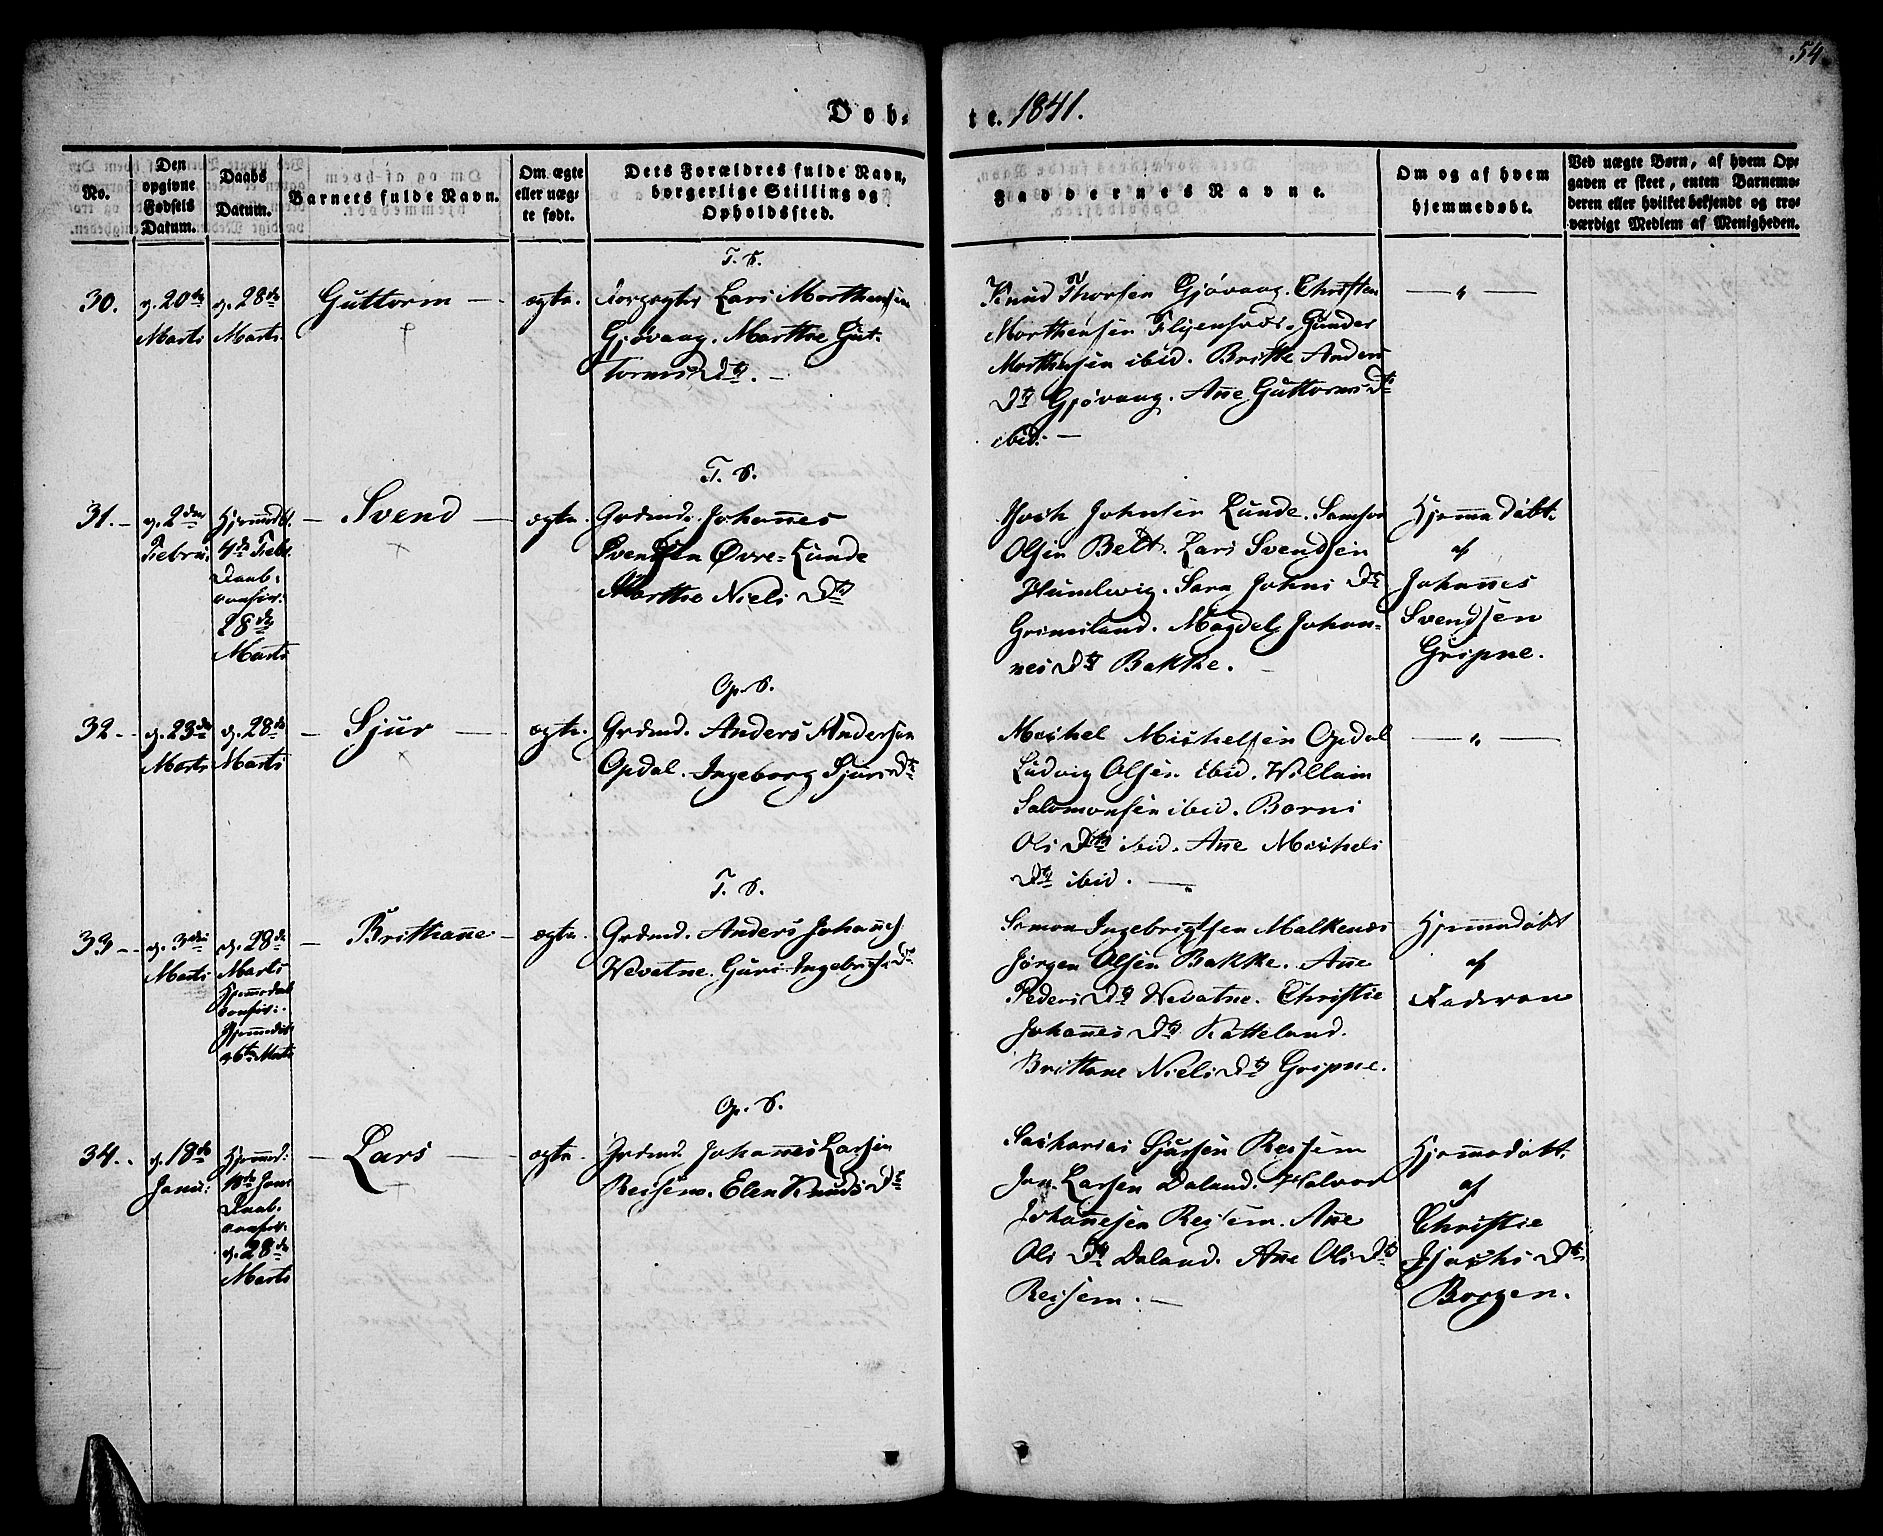 54.
Døb- te. 1841.
No.
Den opgivne Fødsels Datum.
Daabs Datum.
Barnets fulde Navn.
Om ægte eller uægte født.
Dets Forældres fulde Navn, borgerlige Stilling og Opholdssted.
Faddernes Navne.
Om og af hvem hjemmedøbt.
Ved uægte Børn, af hvem Op-
gaven er skeet, enten Barnemo-
deren eller hvilket bekjendt og tro-
værdigt Medlem af Menigheden.
T. S.
30.
d. 20de
Marts
d. 28de
Marts.
Guttorm
ægte.
Lars Morthensen
Gjøvaag. Marthe Gut-
torms Dtr. -
Knud Thorsen Gjøvaag. Christen
Morthensen Gunder
Morthensen ibid. Britte Anders
Dtr Gjøvaag. Ane Guttorms Dtr
ibid. -
— " —
T. S.
31.
d. 2den
Febru:
Hjemmdbt.
4de Febr.
Daab-
confir:
28de
Marts
Svend
ægte.
Grdmd. Johannes
Svendsen Øvre-Lunde
Marthe Niels Dtr
Johnsen Lunde. Samson
Olsen Belt. Lars Svendsen
Hundevig. Sara Johns Dtr
Grimsland. Magdel. Johan-
nes Dtr Bakke.
Hjemmedøbt.
af
Johannes
Svendsen
Gripne.
Op. S.
32.
d. 23de
Marts
d. 28de
Marts
Sjur
ægte.
Grdmd. Anders Andersen
Opdal. Ingeborg Sjurs Dtr
Mechel Michelsen Opdal
Ludvig Olsen ibid. Willum
Salomonsen ibid. Berni
Ols Dtr ibid. Ane Michels
Dtr ibid. —
— " —
T. S.
33
d. 3die
Marts
d. 28de
Marts
Hjemmedaab
confir:
Hjemmedøbt
d 6te Marts
Brithane
ægte.
Grdmd. Anders Johannes.
Wevatne. Guri Ingebrigts Dtr
Samon Ingebrigtsen Malkenæs
Jørgen Olsen Bakke. Ane
Peders Dtr Wevatne. Christie
Johannes Dtr Katteland.
Brithane Niels Dtr Gripne.
Hjemmedøbt
af
Faderen
Op. S.
34.
d. 18de
Janu:
Hjemmed:
18de Janu
Daab-
confir.
d. 28de
Marts
Lars
ægte
Grdmd. Johannes Larsen
Reisem. Elen Knuds Dtr
Sacharias Sjursen Reisem
Jon. Larsen Daland. Halvor
Johannesen Reisem. Ane
Ols Dtr Daland. Ane Ols Dtr
Reisem. —
Hjemmedøbt.
af
Christie
Dtr
Borgen.